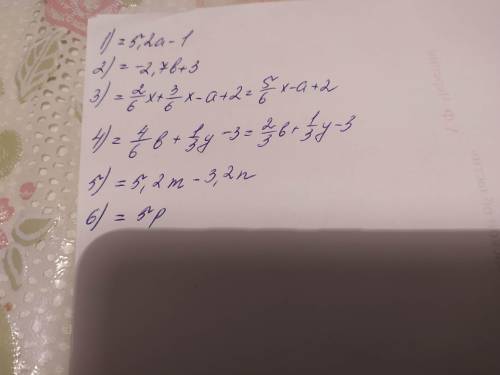 1) = 5,2a - 1
2) = -2,7b + 3
3) = 2/6 x + 3/6 x - a + 2 = 5/6 x - a + 2
4) = 4/6 b + 1/3 y - 3 = 2/3 b + 1/3 y - 3
5) = 5,2m - 3,2n
6) = 5p